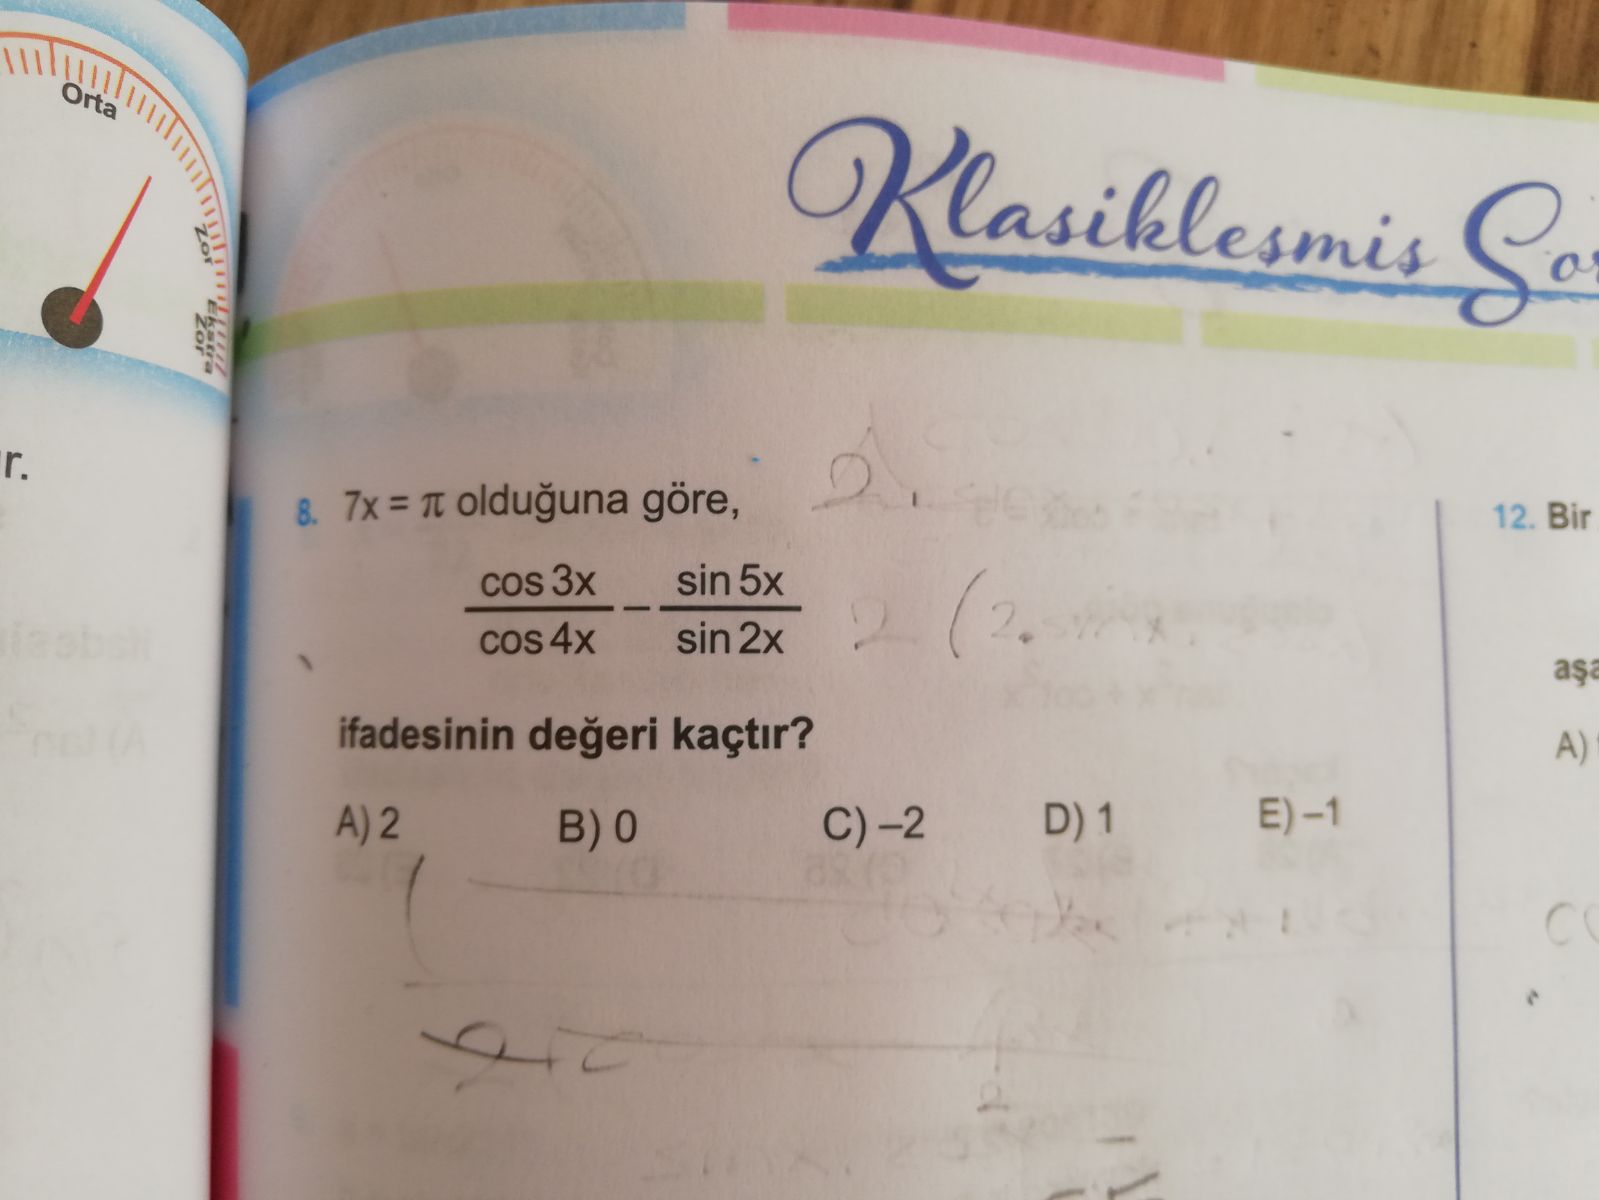 Orta
Zor
Ekstra
Zor
r.
Klasikleşmiş Sor
8. 7x = π olduğuna göre,
cos 3x / cos 4x − sin 5x / sin 2x
2 (2.sin x
ifadesinin değeri kaçtır?
A) 2 B) 0 C) –2 D) 1 E) –1
12. Bir
aşa
A)